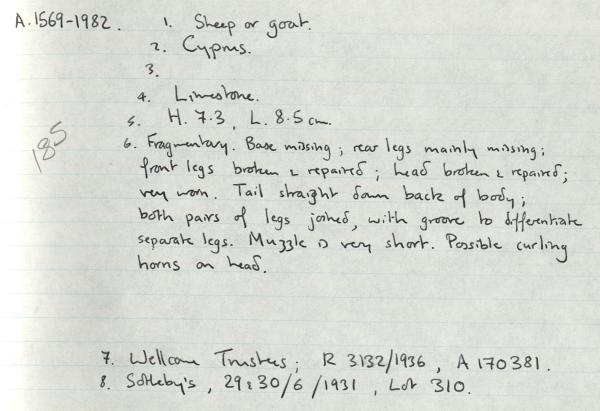 A.1569-1982. 1. Sheep or goat.
2. Cyprus.
3.
4. Limestone.
5. H. 7.3, L. 8.5 cm.
185
6. Fragmentary. Base missing; rear legs mainly missing;
front legs broken & repaired; head broken & repaired;
very worn. Tail straight down back of body;
both pairs of legs joined, with groove to differentiate
separate legs. Muzzle is very short. Possible curling
horns on head.
7. Wellcome Trustees; R 3132/1936, A 170381.
8. Sotheby's, 29 & 30/6/1931, Lot 310.